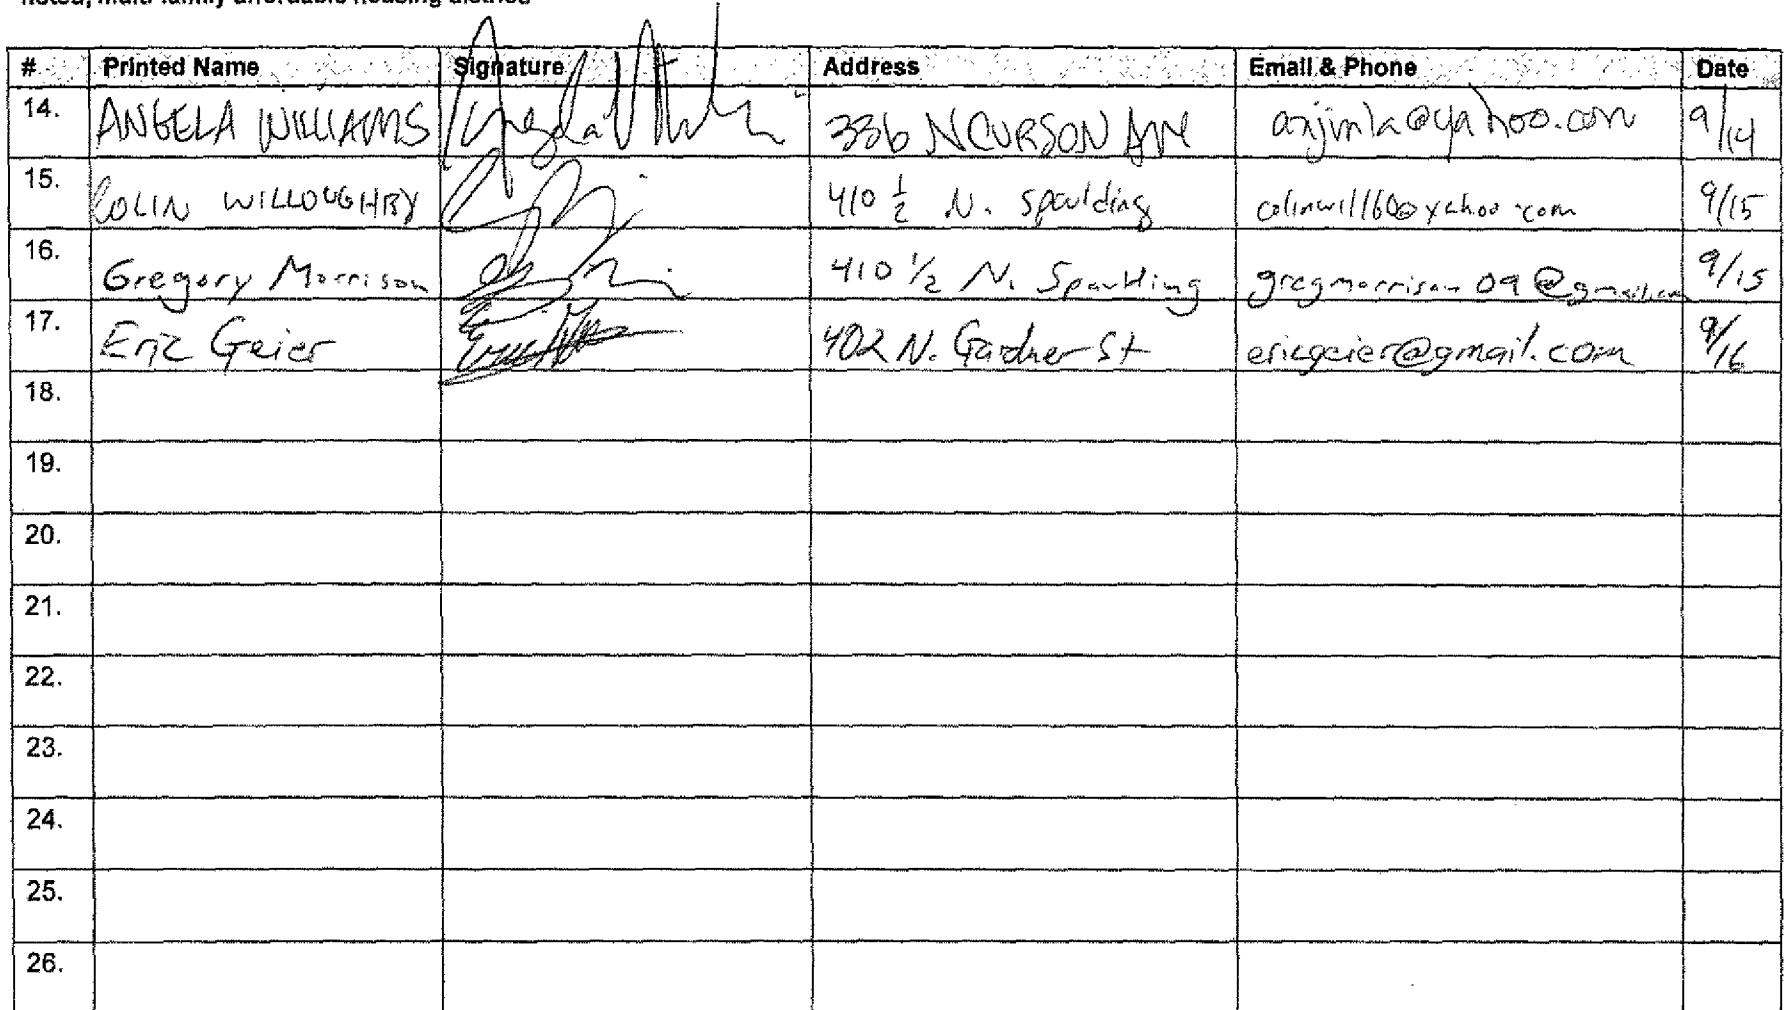 noted, multi-family affordable housing district
# Printed Name Signature Address Email & Phone Date
14. ANGELA WILLIAMS 336 N CURSON AVE anjinla@yahoo.com 9/14
15. COLIN WILLOUGHBY 410 1/2 N. Spaulding colinwill160@yahoo.com 9/15
16. Gregory Morrison 410 1/2 N. Spaulding gregmorrison09@gmail.com 9/15
17. Eric Geier 402 N. Gardner St ericgeier@gmail.com 9/16
18.
19.
20.
21.
22.
23.
24.
25.
26.